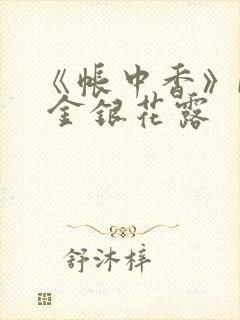 《帐中香》
金银花露
舒沐梓